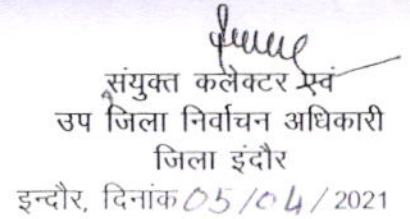 संयुक्त कलेक्टर एवं
उप जिला निर्वाचन अधिकारी
जिला इंदौर
इन्दौर, दिनांक 05/04/2021